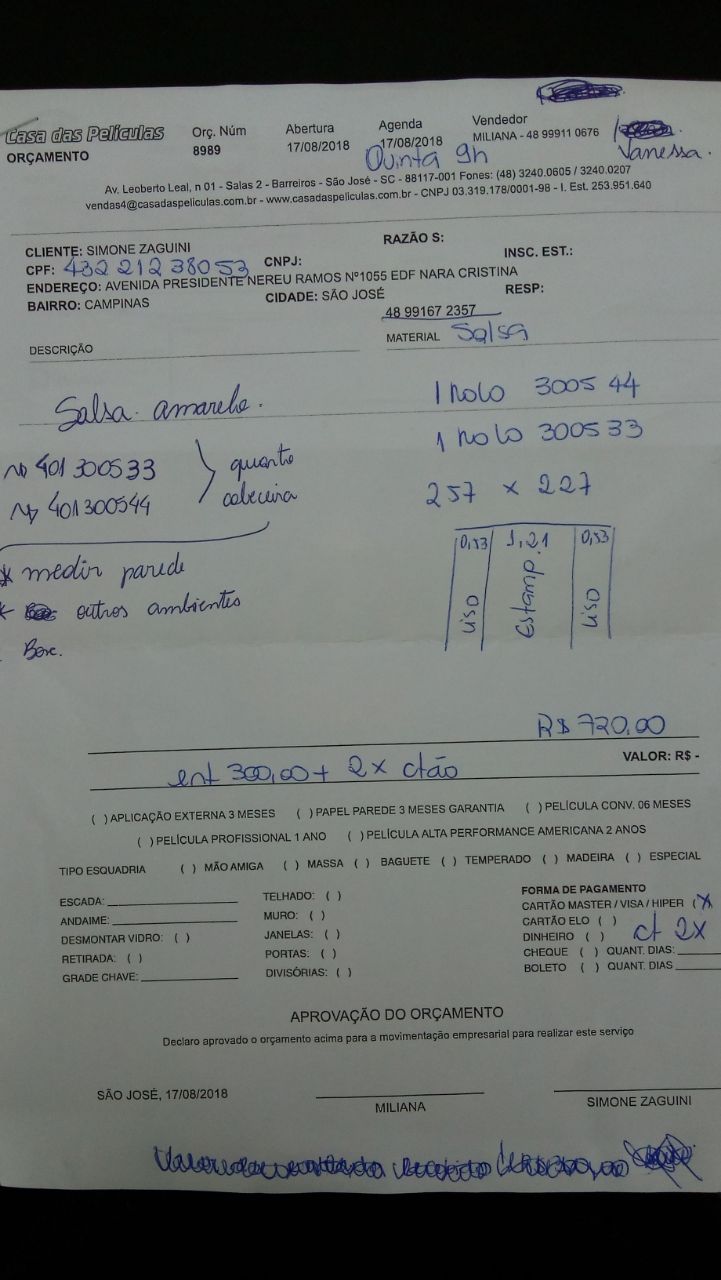 Casa das Películas
ORÇAMENTO
Orç. Núm
8989
Abertura
17/08/2018
Agenda
17/08/2018
Quinta 9h
Vendedor
MILIANA - 48 99911 0676
Vanessa.
Av. Leoberto Leal, n 01 - Salas 2 - Barreiros - São José - SC - 88117-001 Fones: (48) 3240.0605 / 3240.0207
vendas4@casadaspeliculas.com.br - www.casadaspeliculas.com.br - CNPJ 03.319.178/0001-98 - I. Est. 253.951.640
CLIENTE: SIMONE ZAGUINI RAZÃO S:
CPF: 432 212 380 53 CNPJ: INSC. EST.:
ENDEREÇO: AVENIDA PRESIDENTE NEREU RAMOS Nº1055 EDF NARA CRISTINA
BAIRRO: CAMPINAS CIDADE: SÃO JOSÉ RESP:
48 99167 2357
DESCRIÇÃO MATERIAL Salsa
Salsa amarelo.
401 300533
401300544
quarto
cabeceira
* medir parede
outros ambientes
1 rolo 3005 44
1 rolo 300533
257 x 227
0,53 1,21 0,53
Liso Estamp. Liso
R$ 720,00
VALOR: R$ -
ent 300,00 + 2x ctão
( ) APLICAÇÃO EXTERNA 3 MESES ( ) PAPEL PAREDE 3 MESES GARANTIA ( ) PELÍCULA CONV. 06 MESES
( ) PELÍCULA PROFISSIONAL 1 ANO ( ) PELÍCULA ALTA PERFORMANCE AMERICANA 2 ANOS
TIPO ESQUADRIA ( ) MÃO AMIGA ( ) MASSA ( ) BAGUETE ( ) TEMPERADO ( ) MADEIRA ( ) ESPECIAL
ESCADA:
ANDAIME:
DESMONTAR VIDRO: ( )
RETIRADA: ( )
GRADE CHAVE:
TELHADO: ( )
MURO: ( )
JANELAS: ( )
PORTAS: ( )
DIVISÓRIAS: ( )
FORMA DE PAGAMENTO
CARTÃO MASTER / VISA / HIPER (X
CARTÃO ELO ( )
DINHEIRO ( ) ct 2x
CHEQUE ( ) QUANT. DIAS:
BOLETO ( ) QUANT. DIAS
APROVAÇÃO DO ORÇAMENTO
Declaro aprovado o orçamento acima para a movimentação empresarial para realizar este serviço
SÃO JOSÉ, 17/08/2018
MILIANA
SIMONE ZAGUINI